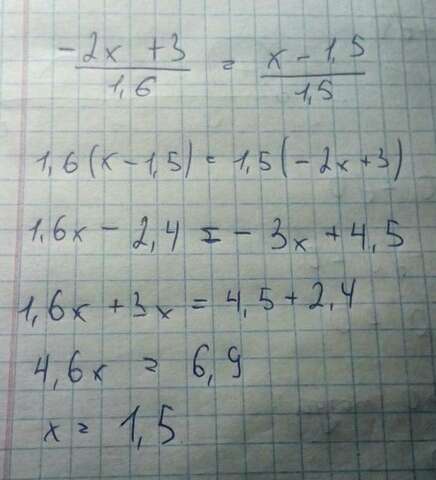 -2x + 3 / 1,6 = x - 1,5 / 1,5
1,6(x - 1,5) = 1,5(-2x + 3)
1,6x - 2,4 = - 3x + 4,5
1,6x + 3x = 4,5 + 2,4
4,6x = 6,9
x = 1,5